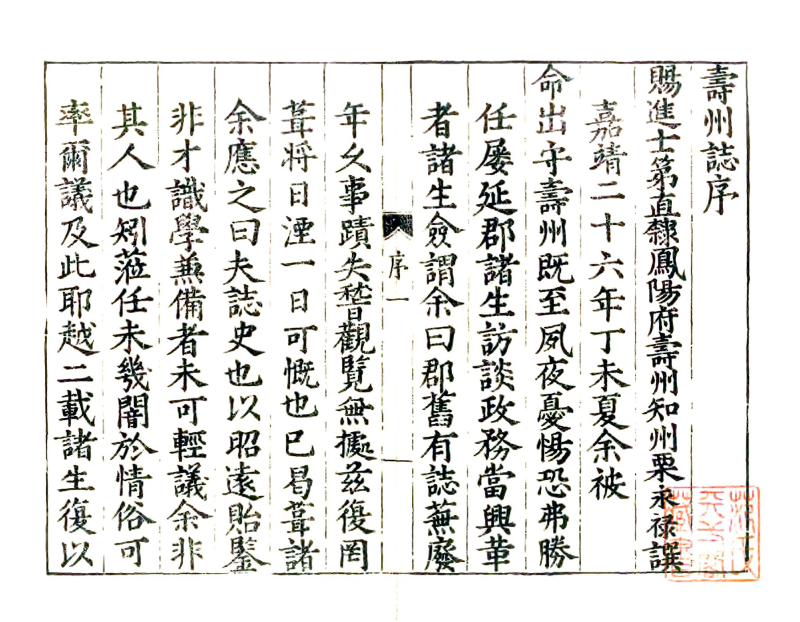 壽州誌序
賜進士第直隸鳳陽府壽州知州栗永祿譔
嘉靖二十六年丁未夏余被
命出守壽州既至夙夜憂惕恐弗勝
任屡延郡諸生訪談政務當興革
者諸生僉謂余曰郡舊有誌蕪廢
序一
年久事蹟失替觀覽無攄兹復罔
葺將日湮一日可慨也已曷葺諸
余應之曰夫誌史也以昭遠貽鑒
非才識學兼備者未可輕議余非
其人也矧蒞任未幾闇於情俗可
率爾議及此耶越二載諸生復以